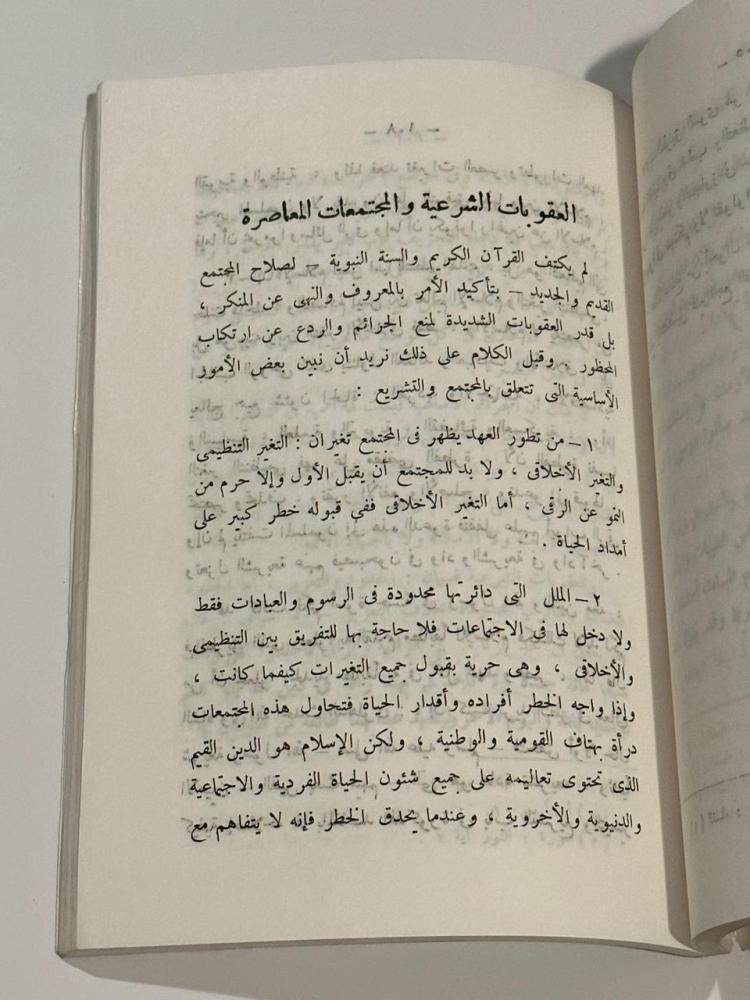 – ١٠٨ –
العقوبات الشرعية والمجتمعات المعاصرة
لم يكتف القرآن الكريم والسنة النبوية – لصلاح المجتمع
القديم والجديد – بتأكيد الأمر بالمعروف والنهى عن المنكر ،
بل قدر العقوبات الشديدة لمنع الجرائم والردع عن ارتكاب
المحظور . وقبل الكلام على ذلك نريد أن نبين بعض الأمور
الأساسية التى تتعلق بالمجتمع والتشريع :
١ – من تطور العهد يظهر فى المجتمع تغيران : التغير التنظيمى
والتغير الأخلاقى ، ولا بد للمجتمع أن يقبل الأول وإلا حرم من
النمو عن الرقى ، أما التغير الأخلاقى ففى قبوله خطر كبير على
أمداد الحياة .
٢ – الملل التى دائرتها محدودة فى الرسوم والعبادات فقط
ولا دخل لها فى الاجتماعات فلا حاجة بها للتفريق بين التنظيمى
والأخلاقى ، وهى حرية بقبول جميع التغيرات كيفما كانت ،
وإذا واجه الخطر أفراده وأقدار الحياة فتحاول هذه المجتمعات
درأة بهتاف القومية والوطنية ؛ ولكن الإسلام هو الدين القيم
الذى تحتوى تعاليمه على جميع شئون الحياة الفردية والاجتماعية
والدنيوية والأخروية ، وعندما يحدق الخطر فإنه لا يتفاهم مع